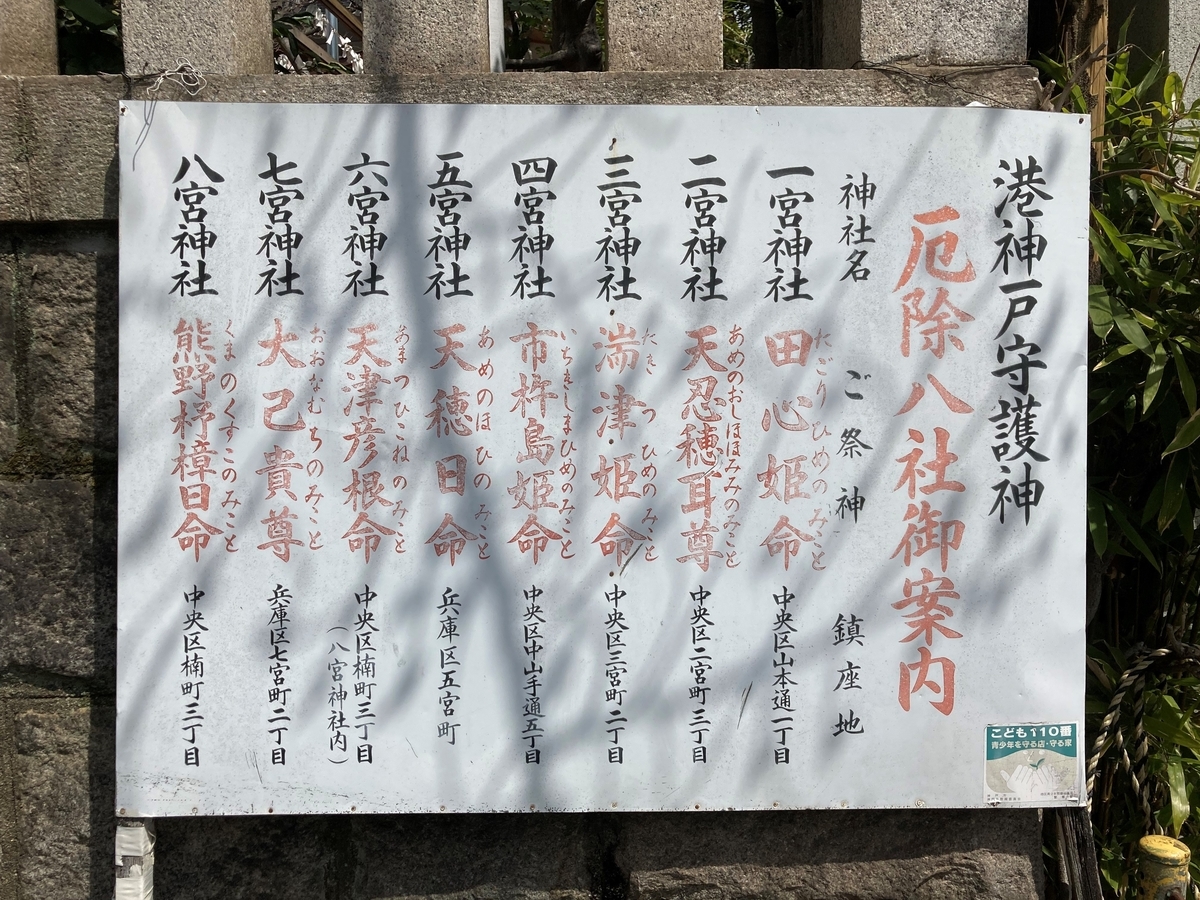 港神戸守護神
厄除八社御案内
神社名 ご祭神 鎮座地
一宮神社 田心姫命 中央区山本通一丁目
たごりひめのみこと
二宮神社 天忍穂耳尊 中央区二宮町三丁目
あめのおしほほみみのみこと
三宮神社 湍津姫命 中央区三宮町二丁目
たきつひめのみこと
四宮神社 市杵島姫命 中央区中山手通五丁目
いちきしまひめのみこと
五宮神社 天穂日命 兵庫区五宮町
あめのほひのみこと
六宮神社 天津彦根命 中央区楠町三丁目
あまつひこねのみこと
(八宮神社内)
七宮神社 大己貴尊 兵庫区七宮町二丁目
おおなむちのみこと
八宮神社 熊野杼樟日命 中央区楠町三丁目
くまのくすこのみこと
こども110番
青少年を守る店・守る家